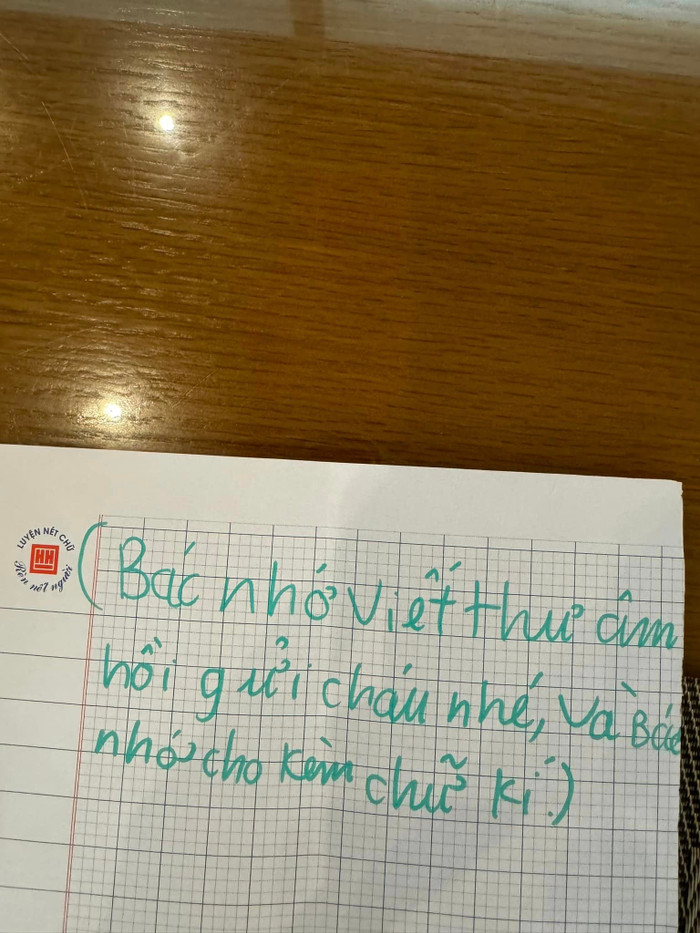 LUYỆN NÉT CHỮ
Rèn nết người
HH
(Bác nhớ viết thư âm
hồi gửi cháu nhé, và Bác
nhớ cho kèm chữ kí.)